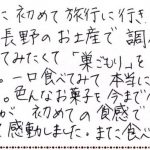 に 初めて旅行に行き
長野のお土産で調
てみたくて「巣ごもり」を
。一口食べてみて本当に
。色んなお菓子を今まで
が、初めての食感で
て感動しました。また食べ